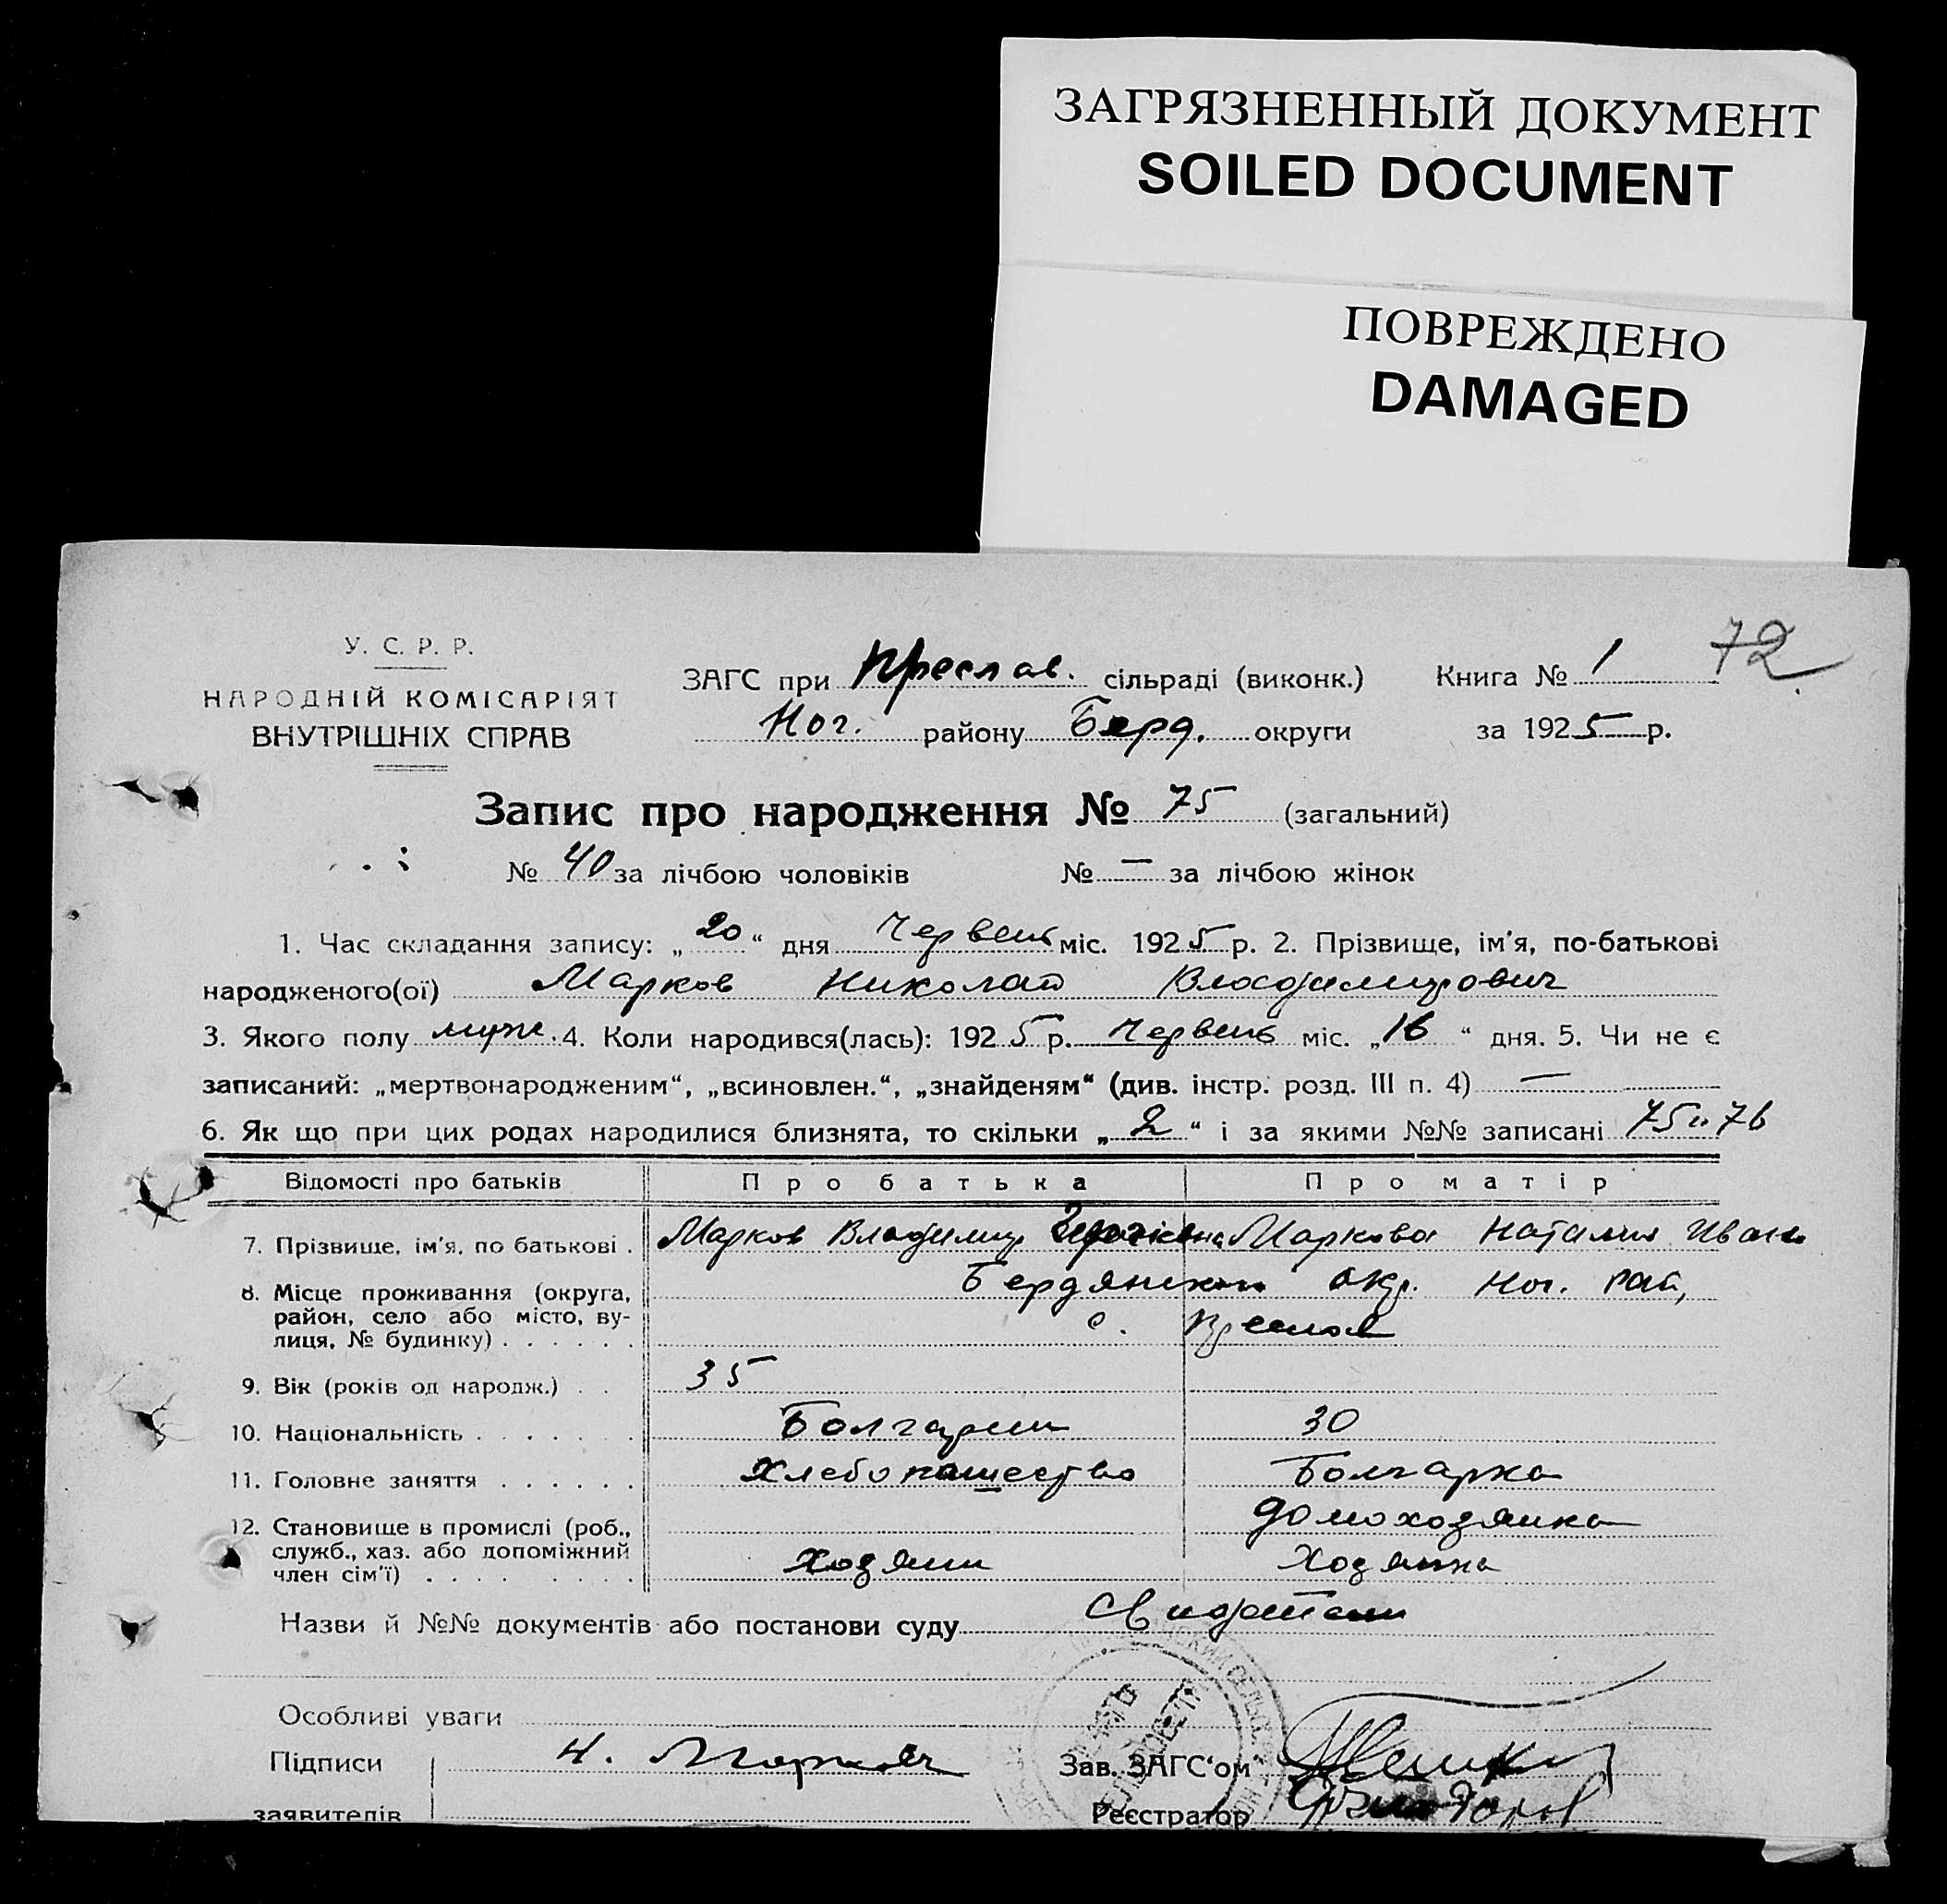 ЗАГРЯЗНЕННЫЙ ДОКУМЕНТ
SOILED DOCUMENT
ПОВРЕЖДЕНО
DAMAGED
72
У. С. Р. Р.
НАРОДНІЙ КОМІСАРІЯТ
ВНУТРІШНІХ СПРАВ
ЗАГС при Преслав. сільраді (виконк.) Книга № 1
Ног. району Берд. округи за 1925 р.
Запис про народження № 75 (загальний)
№ 40 за лічбою чоловіків № — за лічбою жінок
1. Час складання запису: „20“ дня Червень міс. 1925 р. 2. Прізвище, ім'я, по-батькові
народженого(ої) Марков Николай Владимирович
3. Якого полу муж. 4. Коли народився(лась): 1925 р. Червень міс. „16“ дня. 5. Чи не є
записаний: „мертвонародженим“, „всиновлен.“, „знайденям“ (див. інстр. розд. III п. 4) —
6. Як що при цих родах народилися близнята, то скільки „2“ і за якими №№ записані 75 и 76
Відомості про батьків Про батька Про матір
7. Прізвище, ім'я, по батькові . Марков Владимир Маркова Наталия Иван
8. Місце проживання (округа, район, село або місто, вулиця, № будинку) . . . . . . Бердянского окр. Ног. рай,
с. Преслав
9. Вік (років од народж.) . . 35
10. Національність . . . . . . . Болгарин 30
11. Головне заняття . . . . . . Хлебопашество Болгарка
домохозяика
12. Становище в промислі (роб., служб., хаз. або допоміжний член сім'ї) . . . . . . . . Хозяин Хозяика
Назви й №№ документів або постанови суду
Особливі уваги
Підписи Н. Марков Зав. ЗАГС'ом
заявителів Реєстратор